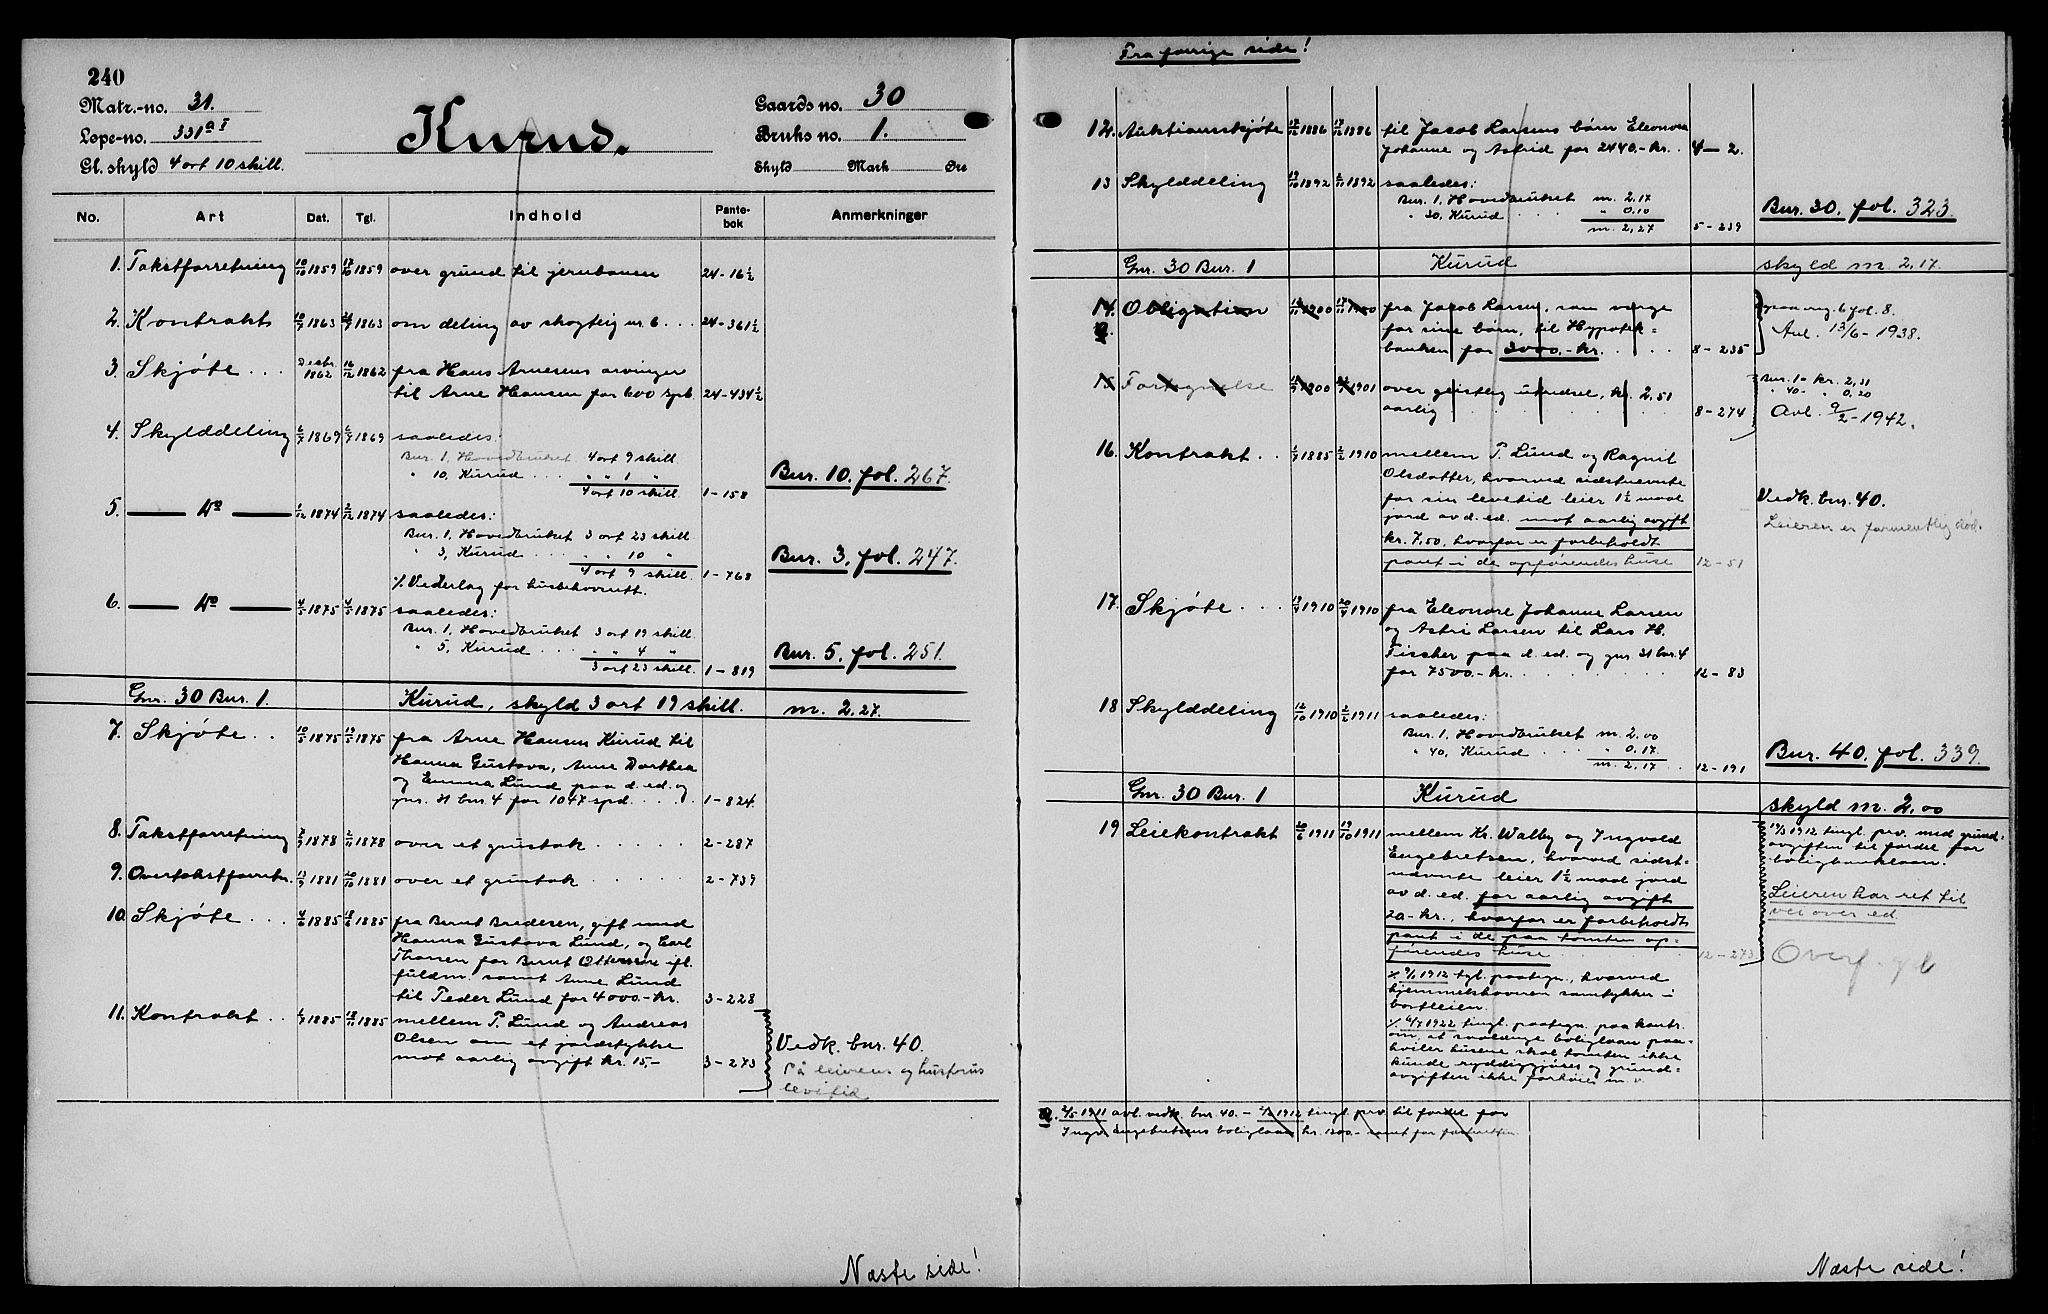 240
Matr.-no. 31.
Løpe-no. 331 a I
Gl. skyld 4 ort 10 skill.
Kurud.
Gaards no. 30
Bruks no. 1.
Skyld Mark Øre
No. Art Dat. Tgl. Indhold Pante-bok Anmerkninger
1. Takstforretning 1859 1859 over grund til jernbanen 24-16½
2. Kontrakt 1863 1863 om deling av skogteig nr. 6. 24-361½
3. Skjøte . . . Desbr. 1862 1862 fra Hans Arnesens arvinger
til Arne Hansen for 600 spd. 24-434½
4. Skylddeling 6/7 1869 6/7 1869 saaledes:
Bnr. 1, Hovedbruket 4 ort 9 skill.
" 10, Kurud . . . " " 1 " Bnr. 10. fol. 267.
4 ort 10 skill. 1-158
5. — Do — 1/12 1874 2/12 1874 saaledes:
Bnr. 1, Hovedbruket 3 ort 23 skill
" 3, Kurud . . . " " 10 " Bnr. 3. fol. 247.
4 ort 9 skill. 1-768
% Vederlag for husbehovsrett.
6. — Do — 4/5 1875 4/5 1875 saaledes:
Bnr. 1, Hovedbruket 3 ort 19 skill.
" 5, Kurud . . . " " 4 " Bnr. 5. fol. 251.
3 ort 23 skill. 1-819
Gnr. 30 Bnr. 1. Kurud, skyld 3 ort 19 skill. m. 2.27.
7. Skjøte . . 10/5 1875 19/5 1875 fra Arne Hansen Kurud til
Hanna Gustava, Anne Dorthea
og Emma Lund paa d. ed. og
gnr. 31 bnr. 4 for 1047 spd. . . . 1-824.
8. Takstforretning 1878 1878 over et grustak . . . . . 2-287
9. Overtakstforretn. 1881 1881 over et grustak . . . . . 2-739
10. Skjøte . . . 4/6 1885 1885 fra Bernt Bredesen, gift med
Hanna Gustava Lund, og Carl
Thoresen for Bernt Ottersen ifl.
fuldm. samt Anne Lund
til Peder Lund for 4000.-kr. 3-228
11. Kontrakt . . 1885 1885 mellem P. Lund og Andreas
Olsen om et jordstykke Vedk. bnr. 40.
mot aarlig avgift kr. 15,- 3-273 På leierens og hustrus
levetid
Næste side!
Fra forrige side!
12. Auktionsskjøte 1886 1886 til Jacob Larsens børn Eleonora
Johanne og Astrid for 2440.- kr. . 4-2.
13 Skylddeling 1892 1892 saaledes:
Bnr. 1, Hovedbruket m. 2,17
" 30, Kurud . . . . " 0,10 Bnr. 30. fol. 323.
m. 2,27 5-239
Gnr. 30 Bnr. 1 Kurud skyld m. 2,17.
14. Obligation 1900 1900 fra Jacob Larsen, som verge paa reg. 6 fol. 8.
for sine børn, til Hypotek- Avl. 13/6-1938.
banken for 3000.-kr. . . . . 8-235
15 Fortegnelse 1900 1901 over geistlig utredsel, kr. 2,51 Bnr. 1- kr. 2,31
" 40- " 0,20
aarlig . . . . . . 8-274 Avl. 9/2-1942.
16. Kontrakt . . 1885 1910 mellem P. Lund og Ragnil
Olsdatter, hvorved sidstnevnte
for sin levetid leier 1½ maal Vedk. bnr. 40.
jord av d. ed. mot aarlig avgift Leieren er formentlig død.
kr. 7,50, hvorfor er forbeholdt
pant i de opførendes huse 12-51
17. Skjøte . . . 1910 1910 fra Eleonore Johanne Larsen
og Astri Larsen til Lars H.
Fischer paa d. ed. og gnr. 31 bnr. 4
for 7500.-kr. . . . . . . . 12-83
18 Skylddeling 12/10 1910 2/2 1911 saaledes:
Bnr. 1, Hovedbruket m. 2,00
" 40, Kurud . . . " 0.17. Bnr. 40. fol. 339.
m. 2,17. 12-191
Gnr. 30 Bnr. 1 Kurud skyld m. 2,00
19 Leiekontrakt 1911 19/10 1911 mellem Kr. Walby og Ingvald 1912 tingl. prv. med grund-
Engebretsen, hvorved sidst- avgiften til fordel for
nævnte leier 1½ maal jord boligbanklaan.
av d. ed. for aarlig avgift Leieren har ret til
20.- kr., hvorfor er forbeholdt vei over ed
pant i de paa tomten op-
førendes huse . . . . . . 12-273 Overf.
% 1912 tgl. paategn., hvorved
hjemmelshaveren samtykker i
bortleien.
% 1922 tingl. paategn. paa kontr.
om, at saalænge boliglaan paa-
hviler husene skal tomten ikke
kunde ryddiggjøres og grund-
avgiften ikke forhøies m. v.
2/5 1911 avl. vedk. bnr. 40. - 1912 tingl. prv. til fordel for
Ingv. Engebretsens boliglaan kr. 1200.- samt for forbeholden.
Næste side!